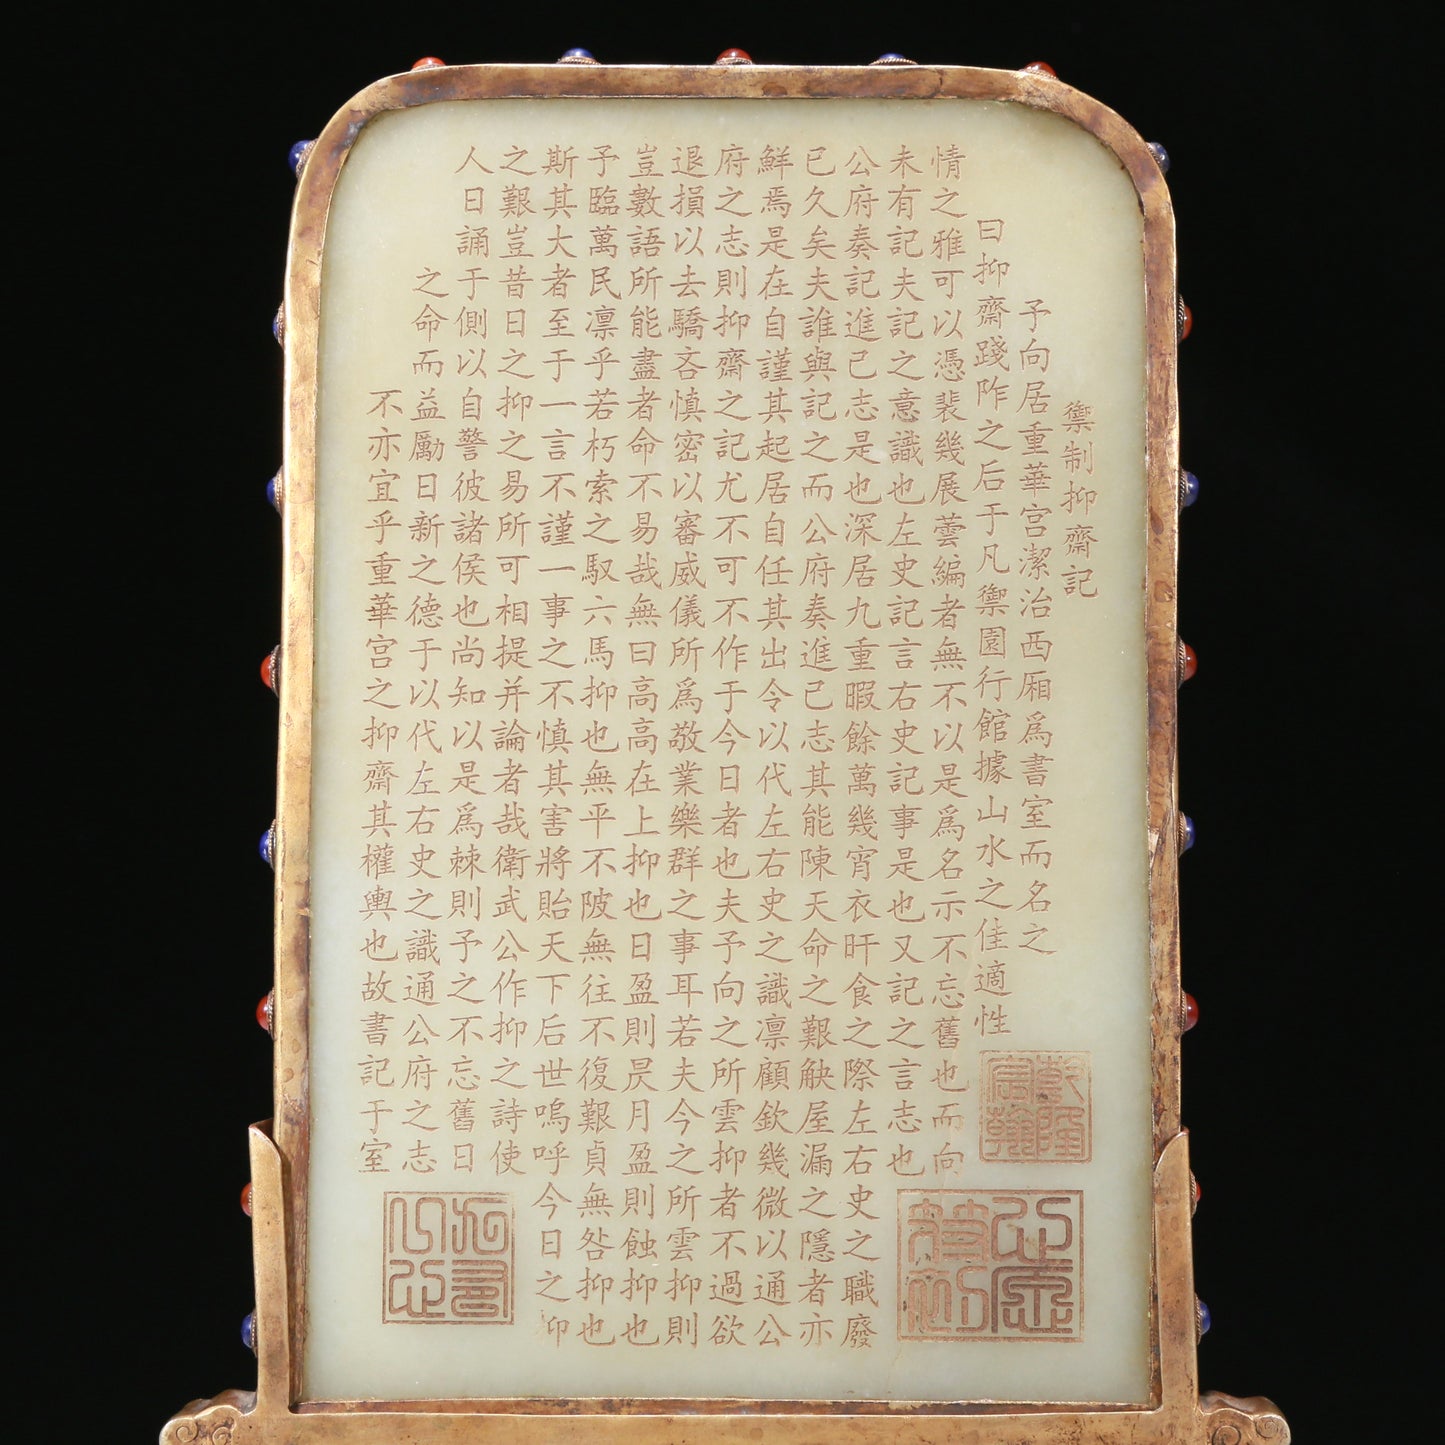 禦制抑齋記
予向居重華宮潔治西厢爲書室而名之
曰抑齋踐阼之后于凡禦園行館據山水之佳適性
情之雅可以憑裴幾展蕓編者無不以是爲名示不忘舊也而向
未有記夫記之意識也左史記言右史記事是也又記之言志也
公府奏記進己志是也深居九重暇餘萬幾宵衣旰食之際左右史之職廢
已久矣夫誰與記之而公府奏進己志其能陳天命之艱觖屋漏之隱者亦
鮮焉是在自謹其起居自任其出令以代左右史之識凛顧欽幾微以通公
府之志則抑齋之記尤不可不作于今日者也夫予向之所雲抑者不過欲
退損以去驕吝慎密以審威儀所爲敬業樂群之事耳若夫今之所雲抑則
豈數語所能盡者命不易哉無曰高高在上抑也日盈則昃月盈則蝕抑也
予臨萬民凛乎若朽索之馭六馬抑也無平不陂無往不復艱貞無咎抑也
斯其大者至于一言不謹一事之不慎其害將貽天下后世嗚呼今日之抑
之艱豈昔日之抑之易所可相提并論者哉衛武公作抑之詩使
人日誦于側以自警彼諸侯也尚知以是爲棘則予之不忘舊日
之命而益勵日新之德于以代左右史之識通公府之志
不亦宜乎重華宮之抑齋其權輿也故書記于室
乾隆宸翰